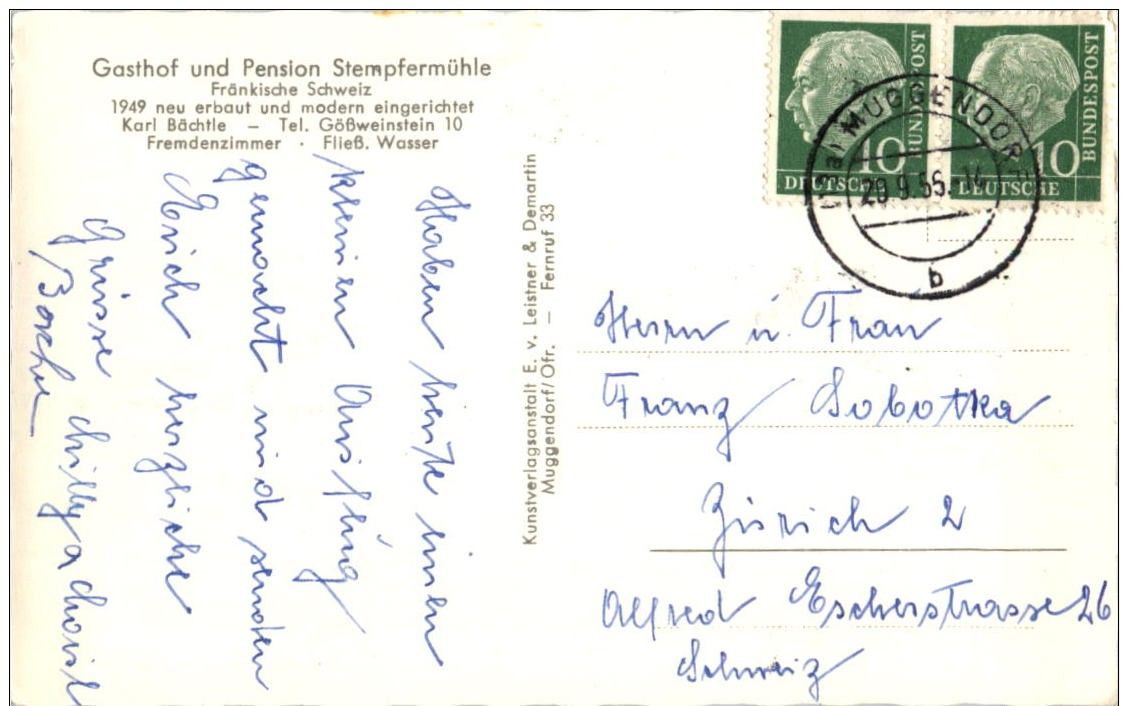 Gasthof und Pension Stempfermühle
Fränkische Schweiz
1949 neu erbaut und modern eingerichtet
Karl Bächtle – Tel. Gößweinstein 10
Fremdenzimmer · Fließ. Wasser
Haben heute einen
kleinen Ausflug
gemacht und senden
Euch herzliche
Grüsse
Kunstverlagsanstalt E. v. Leistner & Demartin
Muggendorf/Ofr. – Fernruf 33
10
DEUTSCHE
BUNDESPOST
10
DEUTSCHE
BUNDESPOST
MUGGENDORF
b
Herrn u. Frau
Franz Sobotka
Zürich 2
Alfred Escherstrasse 26
Schweiz